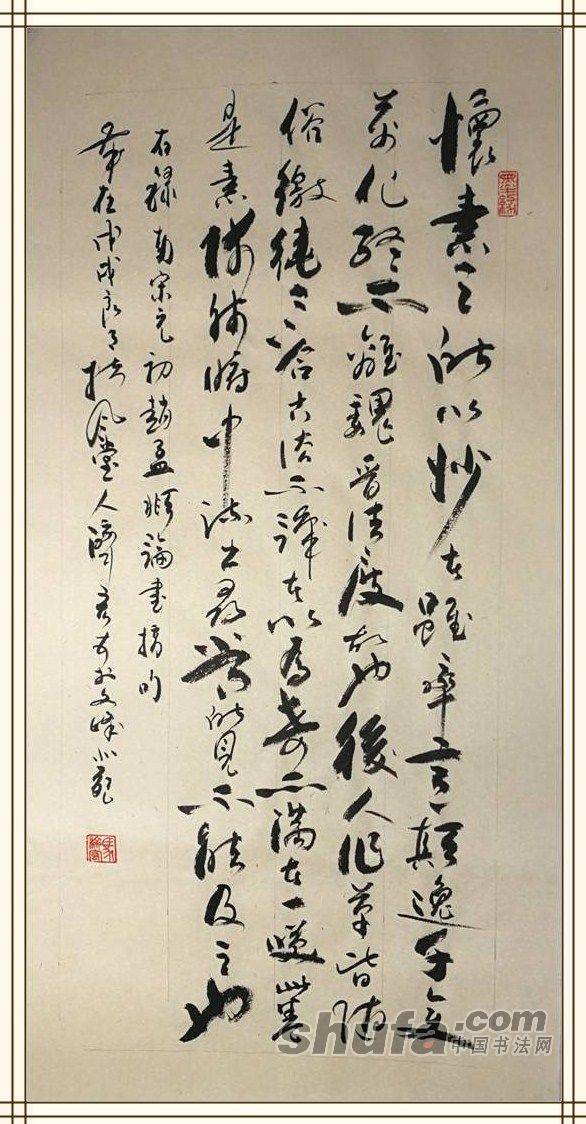 懷素之所以妙者雖率意顛逸千變
萬化終不離魏晉法度故也後人作草皆隨
俗繳繞不合古法不識者以為奇不滿者一咲此卷
是素師肺腑中流出尋常所見不能及之也
右錄南宋元初趙孟頫論書摘句
歲在戊戌良月扶風堂人濟書於文峰小苑
shufa.com
中国书法网